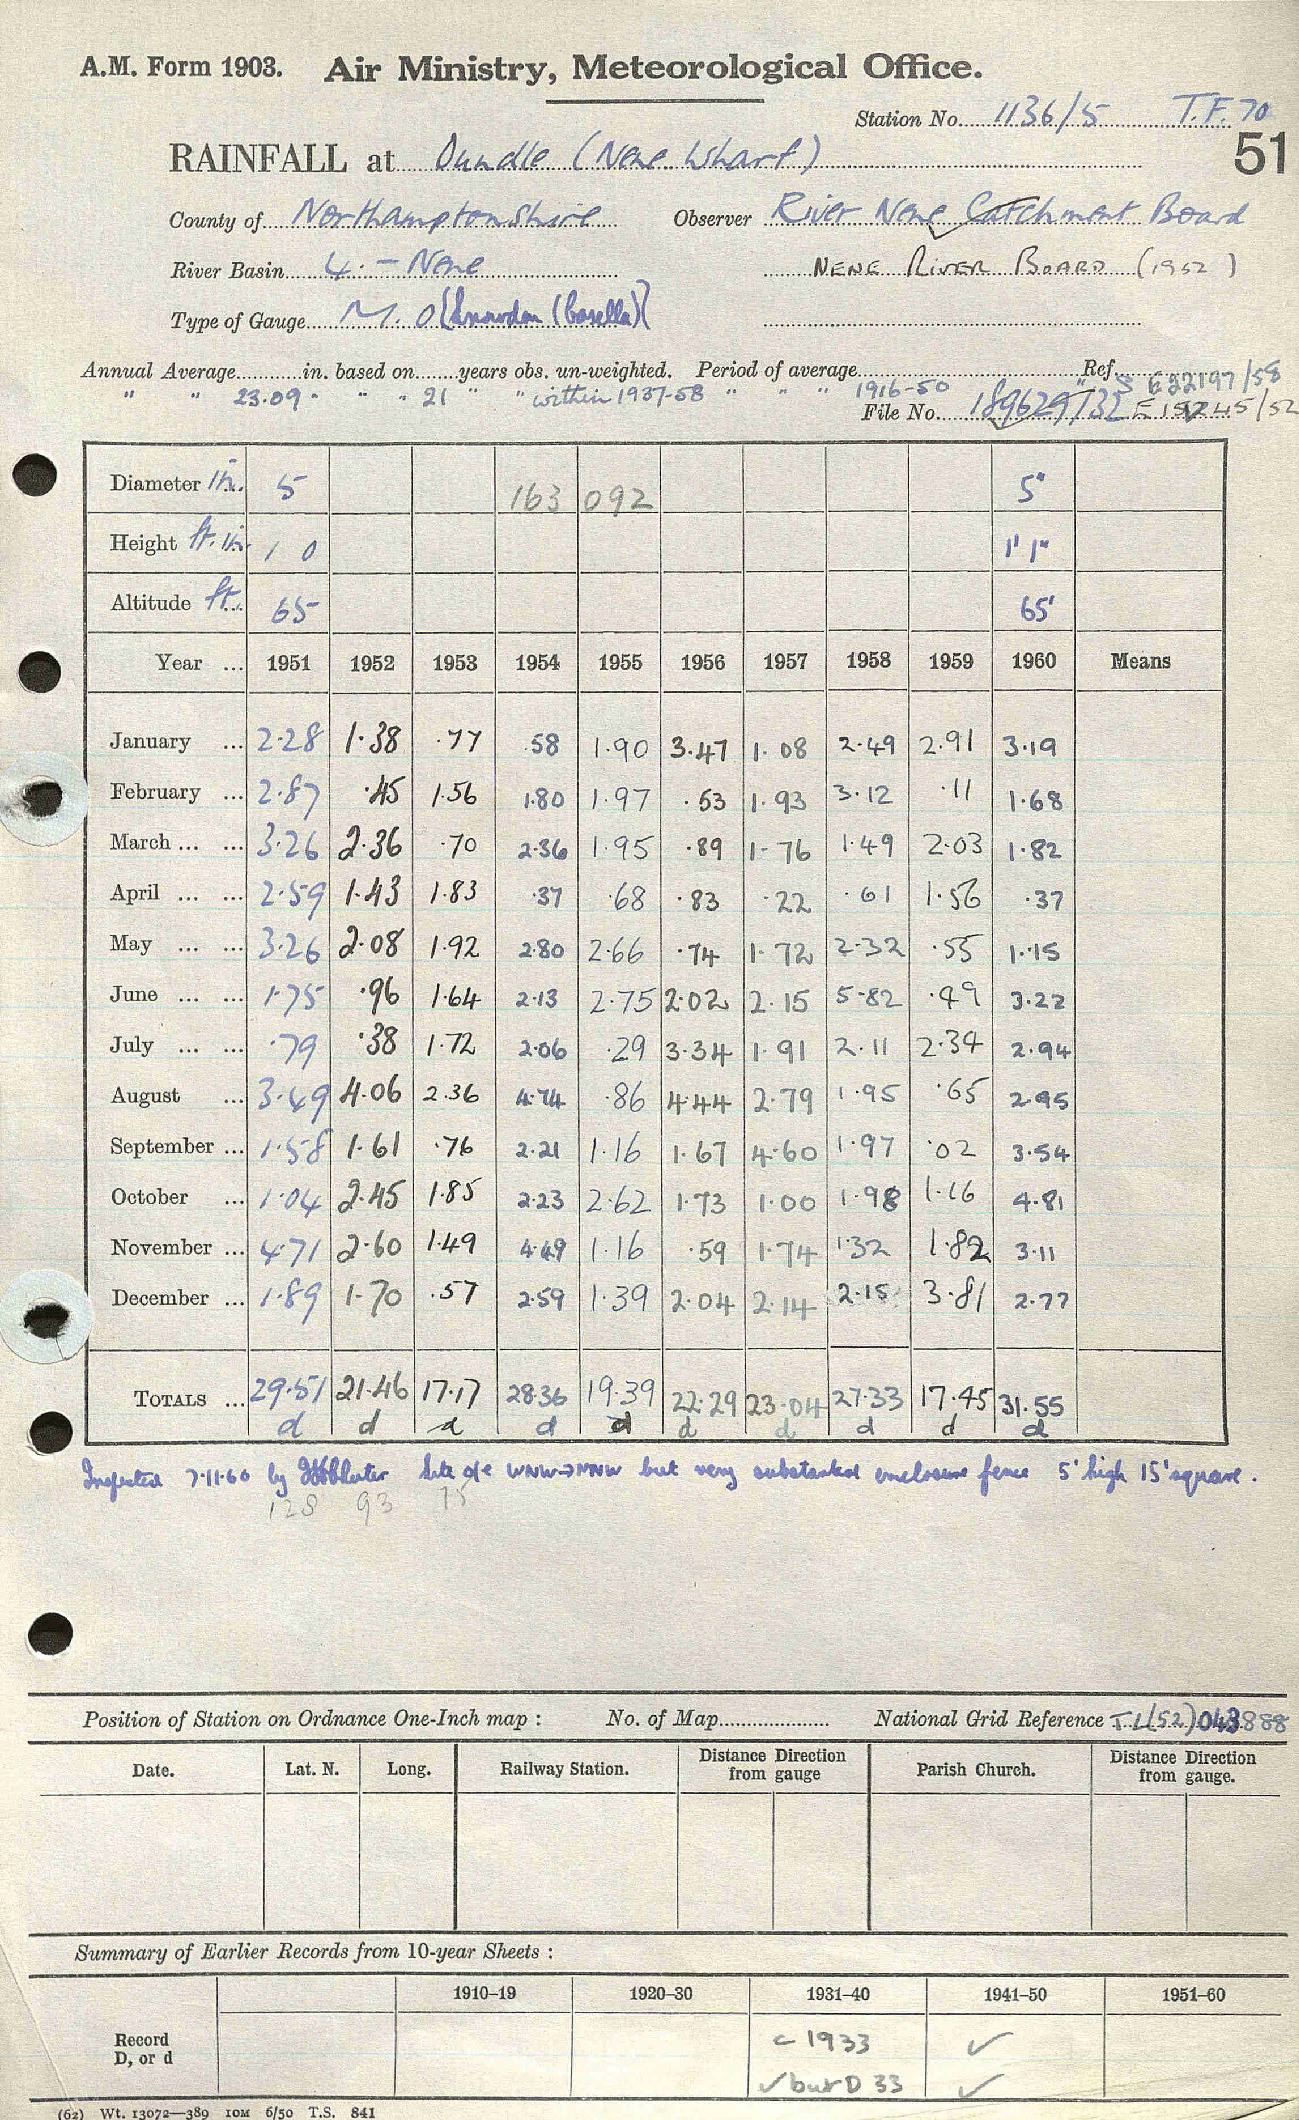 A.M. Form 1903. Air Ministry, Meteorological Office.
Station No. 1136/5 T.F. 70
51
RAINFALL at Oundle (Nene Wharf)
County of Northamptonshire Observer River Nene Catchment Board
River Basin 4. - Nene NENE RIVER BOARD (1952)
Type of Gauge M.O (Snowdon (Casella))
Annual Average in. based on years obs. un-weighted. Period of average Ref.
" " 23.09 " " " 21 " " within 1937-58 " " " 1916-50 S E22197/58
File No. 189629/32
Diameter in. 5 163 092 5"
Height ft. in. 1 0 1' 1"
Altitude ft. 65 65'
Year ... 1951 1952 1953 1954 1955 1956 1957 1958 1959 1960 Means
January ... 2.28 1.38 .77 .58 1.90 3.47 1.08 2.49 2.91 3.19
February ... 2.87 .45 1.56 1.80 1.97 .53 1.93 3.12 .11 1.68
March ... ... 3.26 2.36 .70 2.36 1.95 .89 1.76 1.49 2.03 1.82
April ... ... 2.59 1.43 1.83 .37 .68 .83 .22 .61 1.56 .37
May ... ... 3.26 2.08 1.92 2.80 2.66 .74 1.72 2.32 .55 1.15
June ... ... 1.75 .96 1.64 2.13 2.75 2.02 2.15 5.82 .49 3.22
July ... ... .79 .38 1.72 2.06 .29 3.34 1.91 2.11 2.34 2.94
August ... 3.49 4.06 2.36 4.74 .86 4.44 2.79 1.95 .65 2.95
September ... 1.58 1.61 .76 2.21 1.16 1.67 4.60 1.97 .02 3.54
October ... 1.04 2.45 1.85 2.23 2.62 1.73 1.00 1.98 1.16 4.81
November ... 4.71 2.60 1.49 4.49 1.16 .59 1.74 1.32 1.82 3.11
December ... 1.89 1.70 .57 2.59 1.39 2.04 2.14 2.15 3.81 2.77
TOTALS ... 29.51 21.46 17.17 28.36 19.39 22.29 23.04 27.33 17.45 31.55
d d d d d d d d d d
Inspected 7.11.60 by Site o/e WNW→NNW but very substantial enclosure fence 5' high 15' square.
128 93 75
Position of Station on Ordnance One-Inch map : No. of Map National Grid Reference TL(52)043888
Date. Lat. N. Long. Railway Station. Distance Direction from gauge Parish Church. Distance Direction from gauge.
Summary of Earlier Records from 10-year Sheets :
1910–19 1920–30 1931–40 1941–50 1951–60
Record D, or d c 1933 ✓
✓ but D 33 ✓
(62) Wt. 13072—389 10M 6/50 T.S. 841